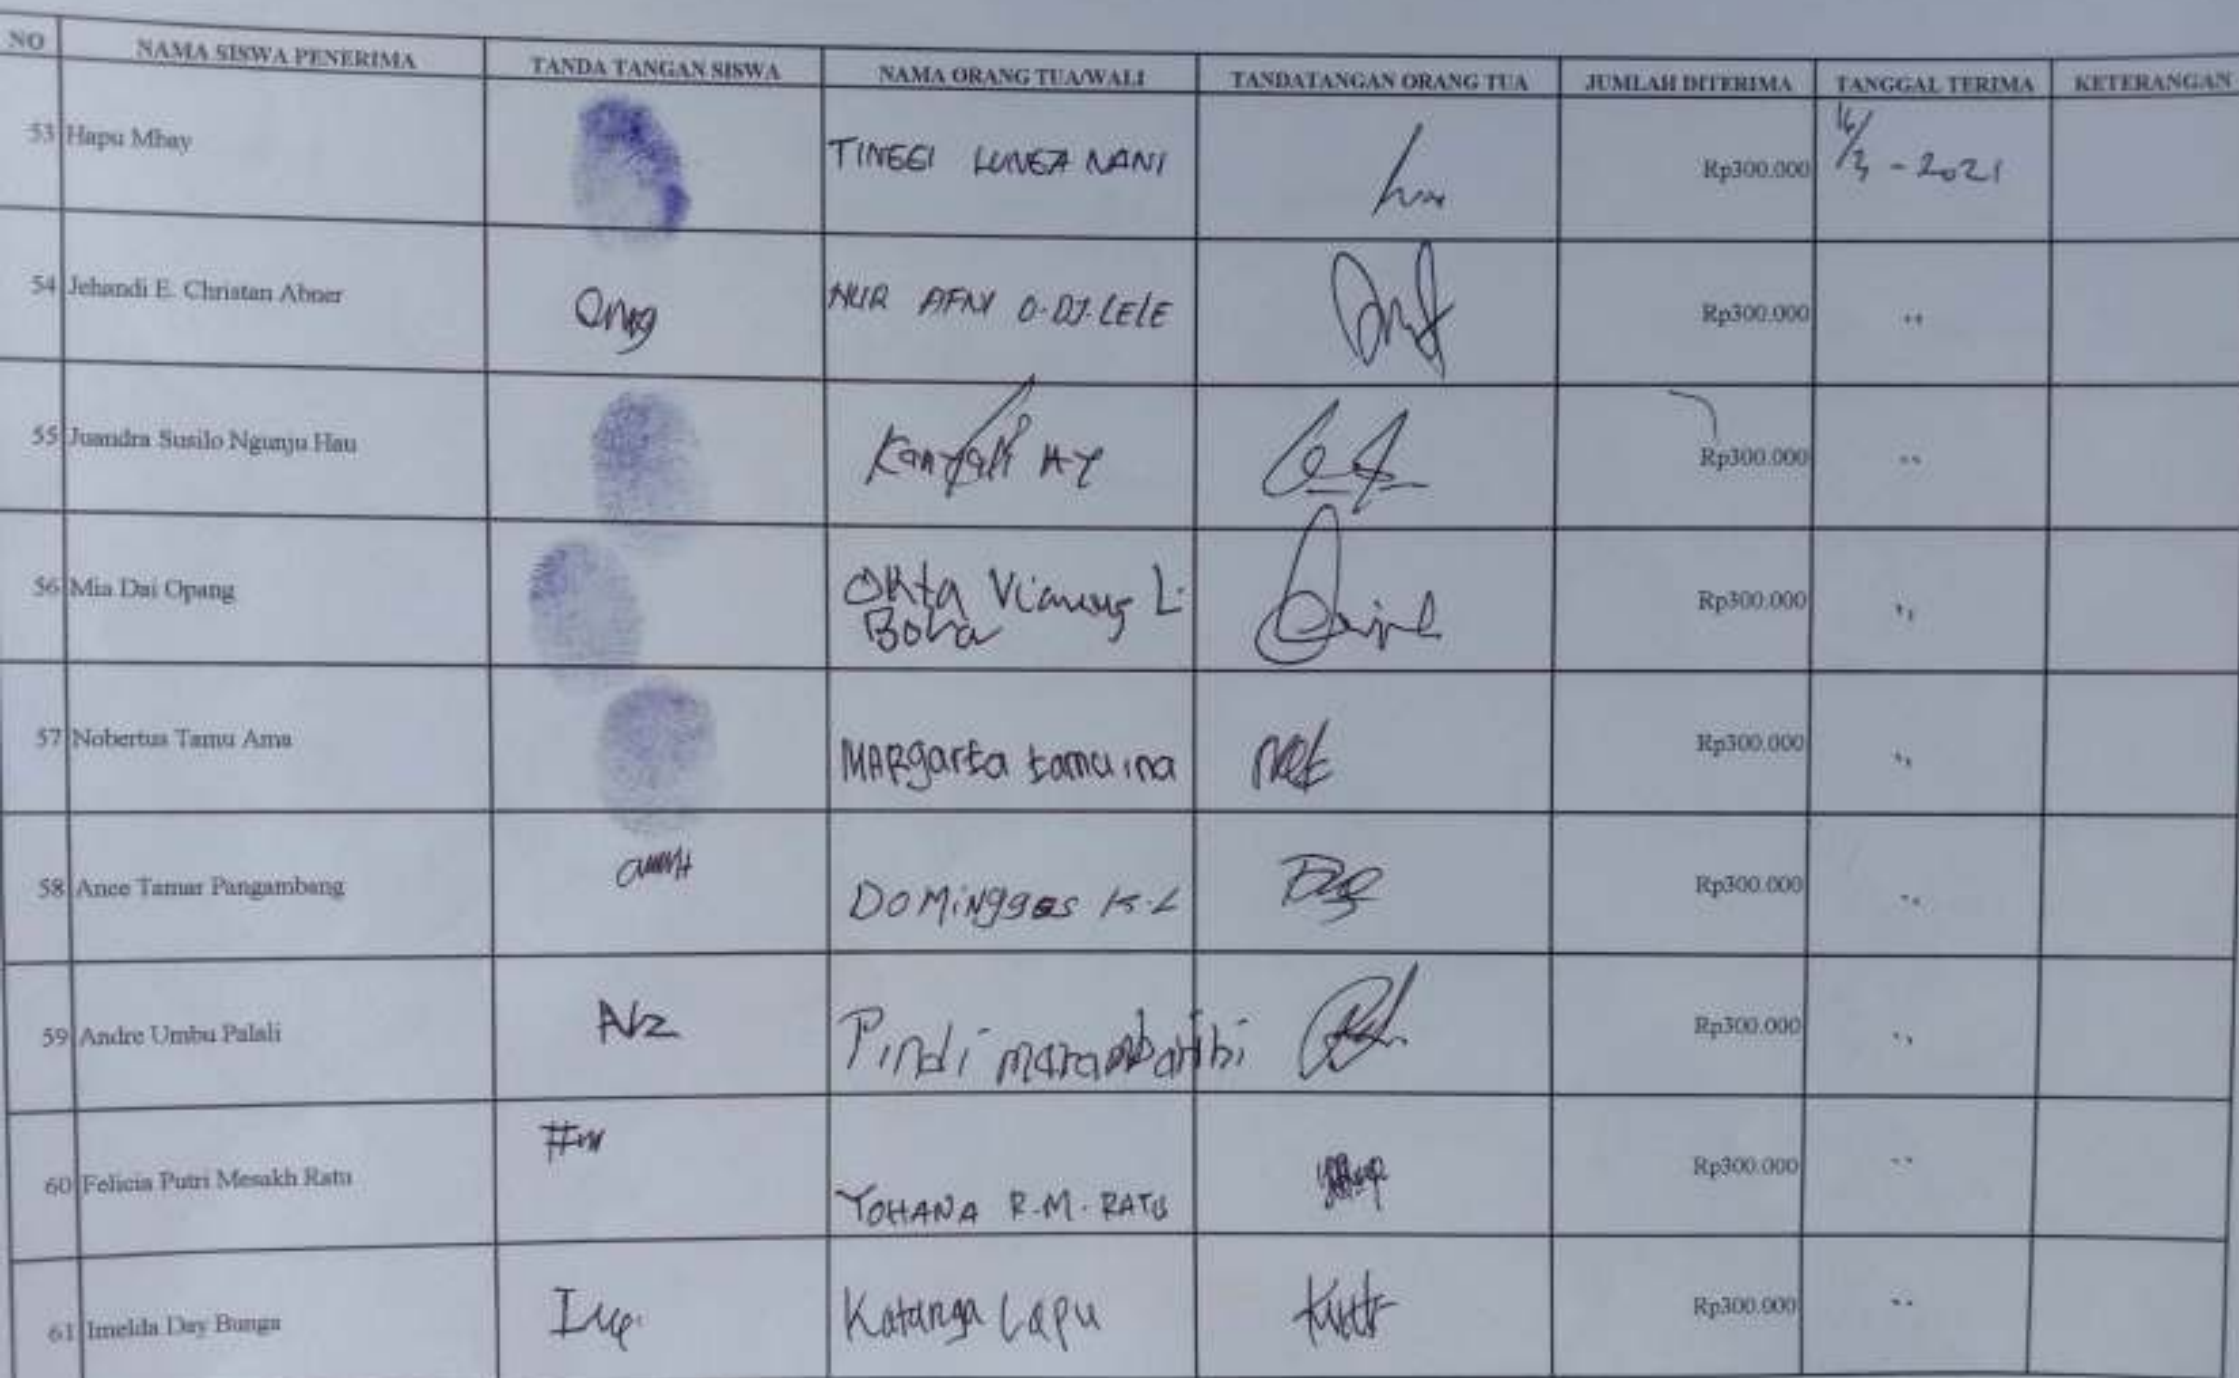 NO NAMA SISWA PENERIMA TANDA TANGAN SISWA NAMA ORANG TUA/WALI TANDATANGAN ORANG TUA JUMLAH DITERIMA TANGGAL TERIMA KETERANGAN
53 Hapu Mbay TINGGI LUNGA NANI Rp300.000 16/3 - 2021
54 Jehandi E. Christan Abner NUR AFNI O.DJ.LELE Rp300.000 ,,
55 Juandra Susilo Ngunju Hau HY Rp300.000 ,,
56 Mia Dai Opang Okta Vianus L. Rp300.000 ,,
Bora
57 Nobertus Tamu Ama MARgarta tamu ina Rp300.000 ,,
58 Ance Tamar Pangambang DoMinggas K.L Rp300.000 ,,
59 Andre Umbu Palali Pindi Rp300.000 ,,
60 Felicia Putri Mesakh Ratu YOHANA R.M. RATU Rp300.000 ,,
61 Imelda Day Bunga Katanga Lapu Rp300.000 ,,